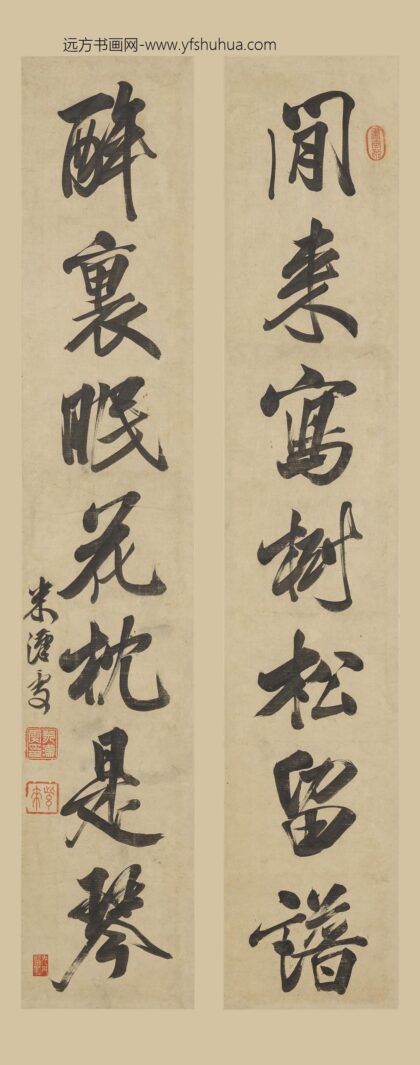 远方书画网-www.yfshuhua.com
閒來寫樹松留譜
醉裏眠花枕是琴
米漢雯